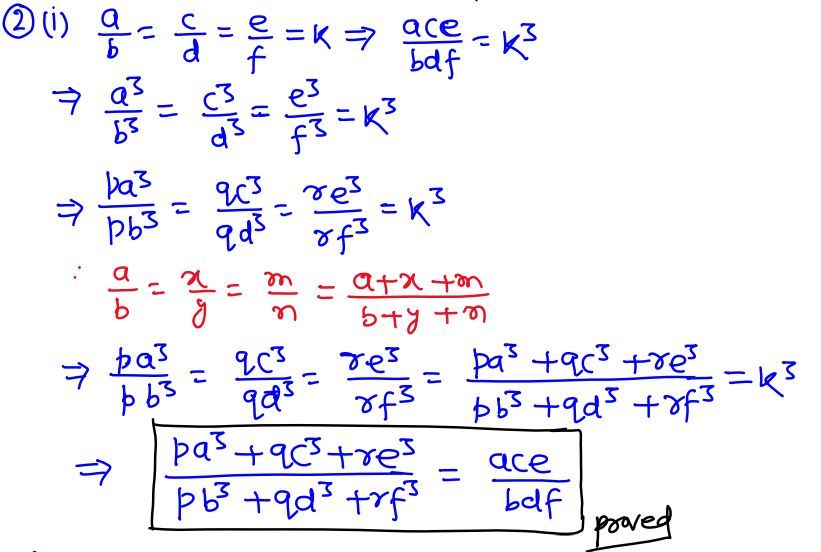 ② (i) a/b = c/d = e/f = k ⇒ ace/bdf = k³
⇒ a³/b³ = c³/d³ = e³/f³ = k³
⇒ pa³/pb³ = qc³/qd³ = re³/rf³ = k³
∵ a/b = x/y = m/n = (a+x+m)/(b+y+n)
⇒ pa³/pb³ = qc³/qd³ = re³/rf³ = (pa³+qc³+re³)/(pb³+qd³+rf³) = k³
⇒ (pa³+qc³+re³)/(pb³+qd³+rf³) = ace/bdf
proved